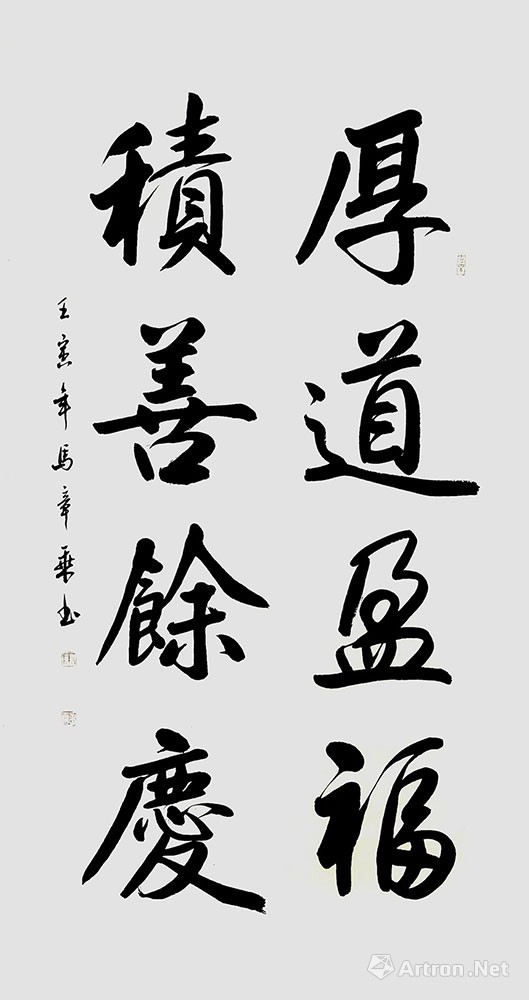 厚道盈福
積善餘慶
壬寅年馬章乘书
Artron.Net